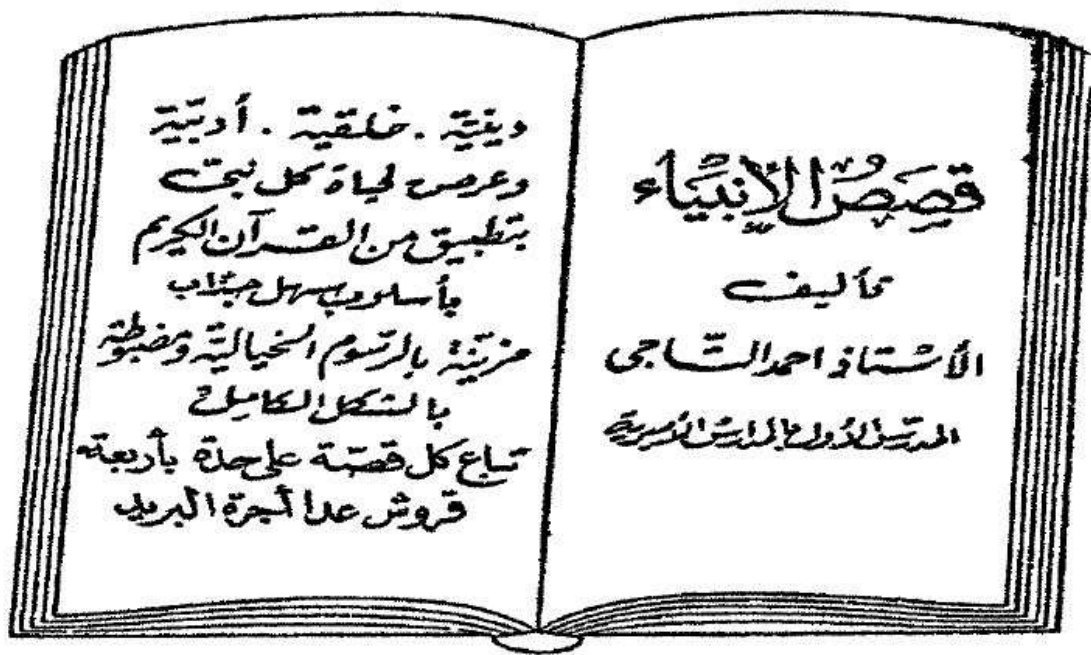 قِصَصُ الأنبيَاء
تأليف
الأستاذ احمد التَّاجى
المدرس الأول بالمدارس الأميرية
دينيّة . خلقية . أدبيّة
وعرض لحياة كل نبىّ
بتطبيق من القرآن الكريم
بأسلوب سهل جذّاب
مزيّنة بالرّسوم الخياليّة ومضبوطة
بالشكل الكامل
تباع كل قصّة على حدة بأربعة
قروش عدا أجرة البريد